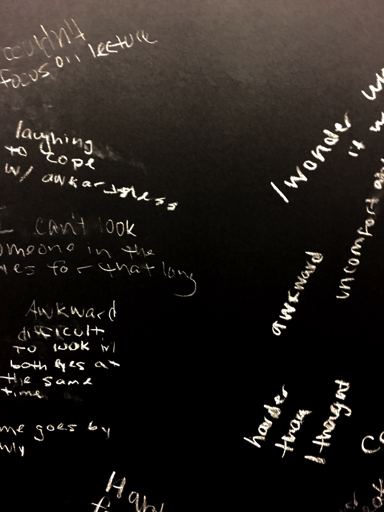 couldn't
focus on lecture
laughing
to cope
w/ awkardness
I can't look
someone in the
eyes for that long
Awkward
difficult
to look w/
both eyes at
the same
time
me goes by
I wonder
it
uncomfort
awkward
harder
than
I thought